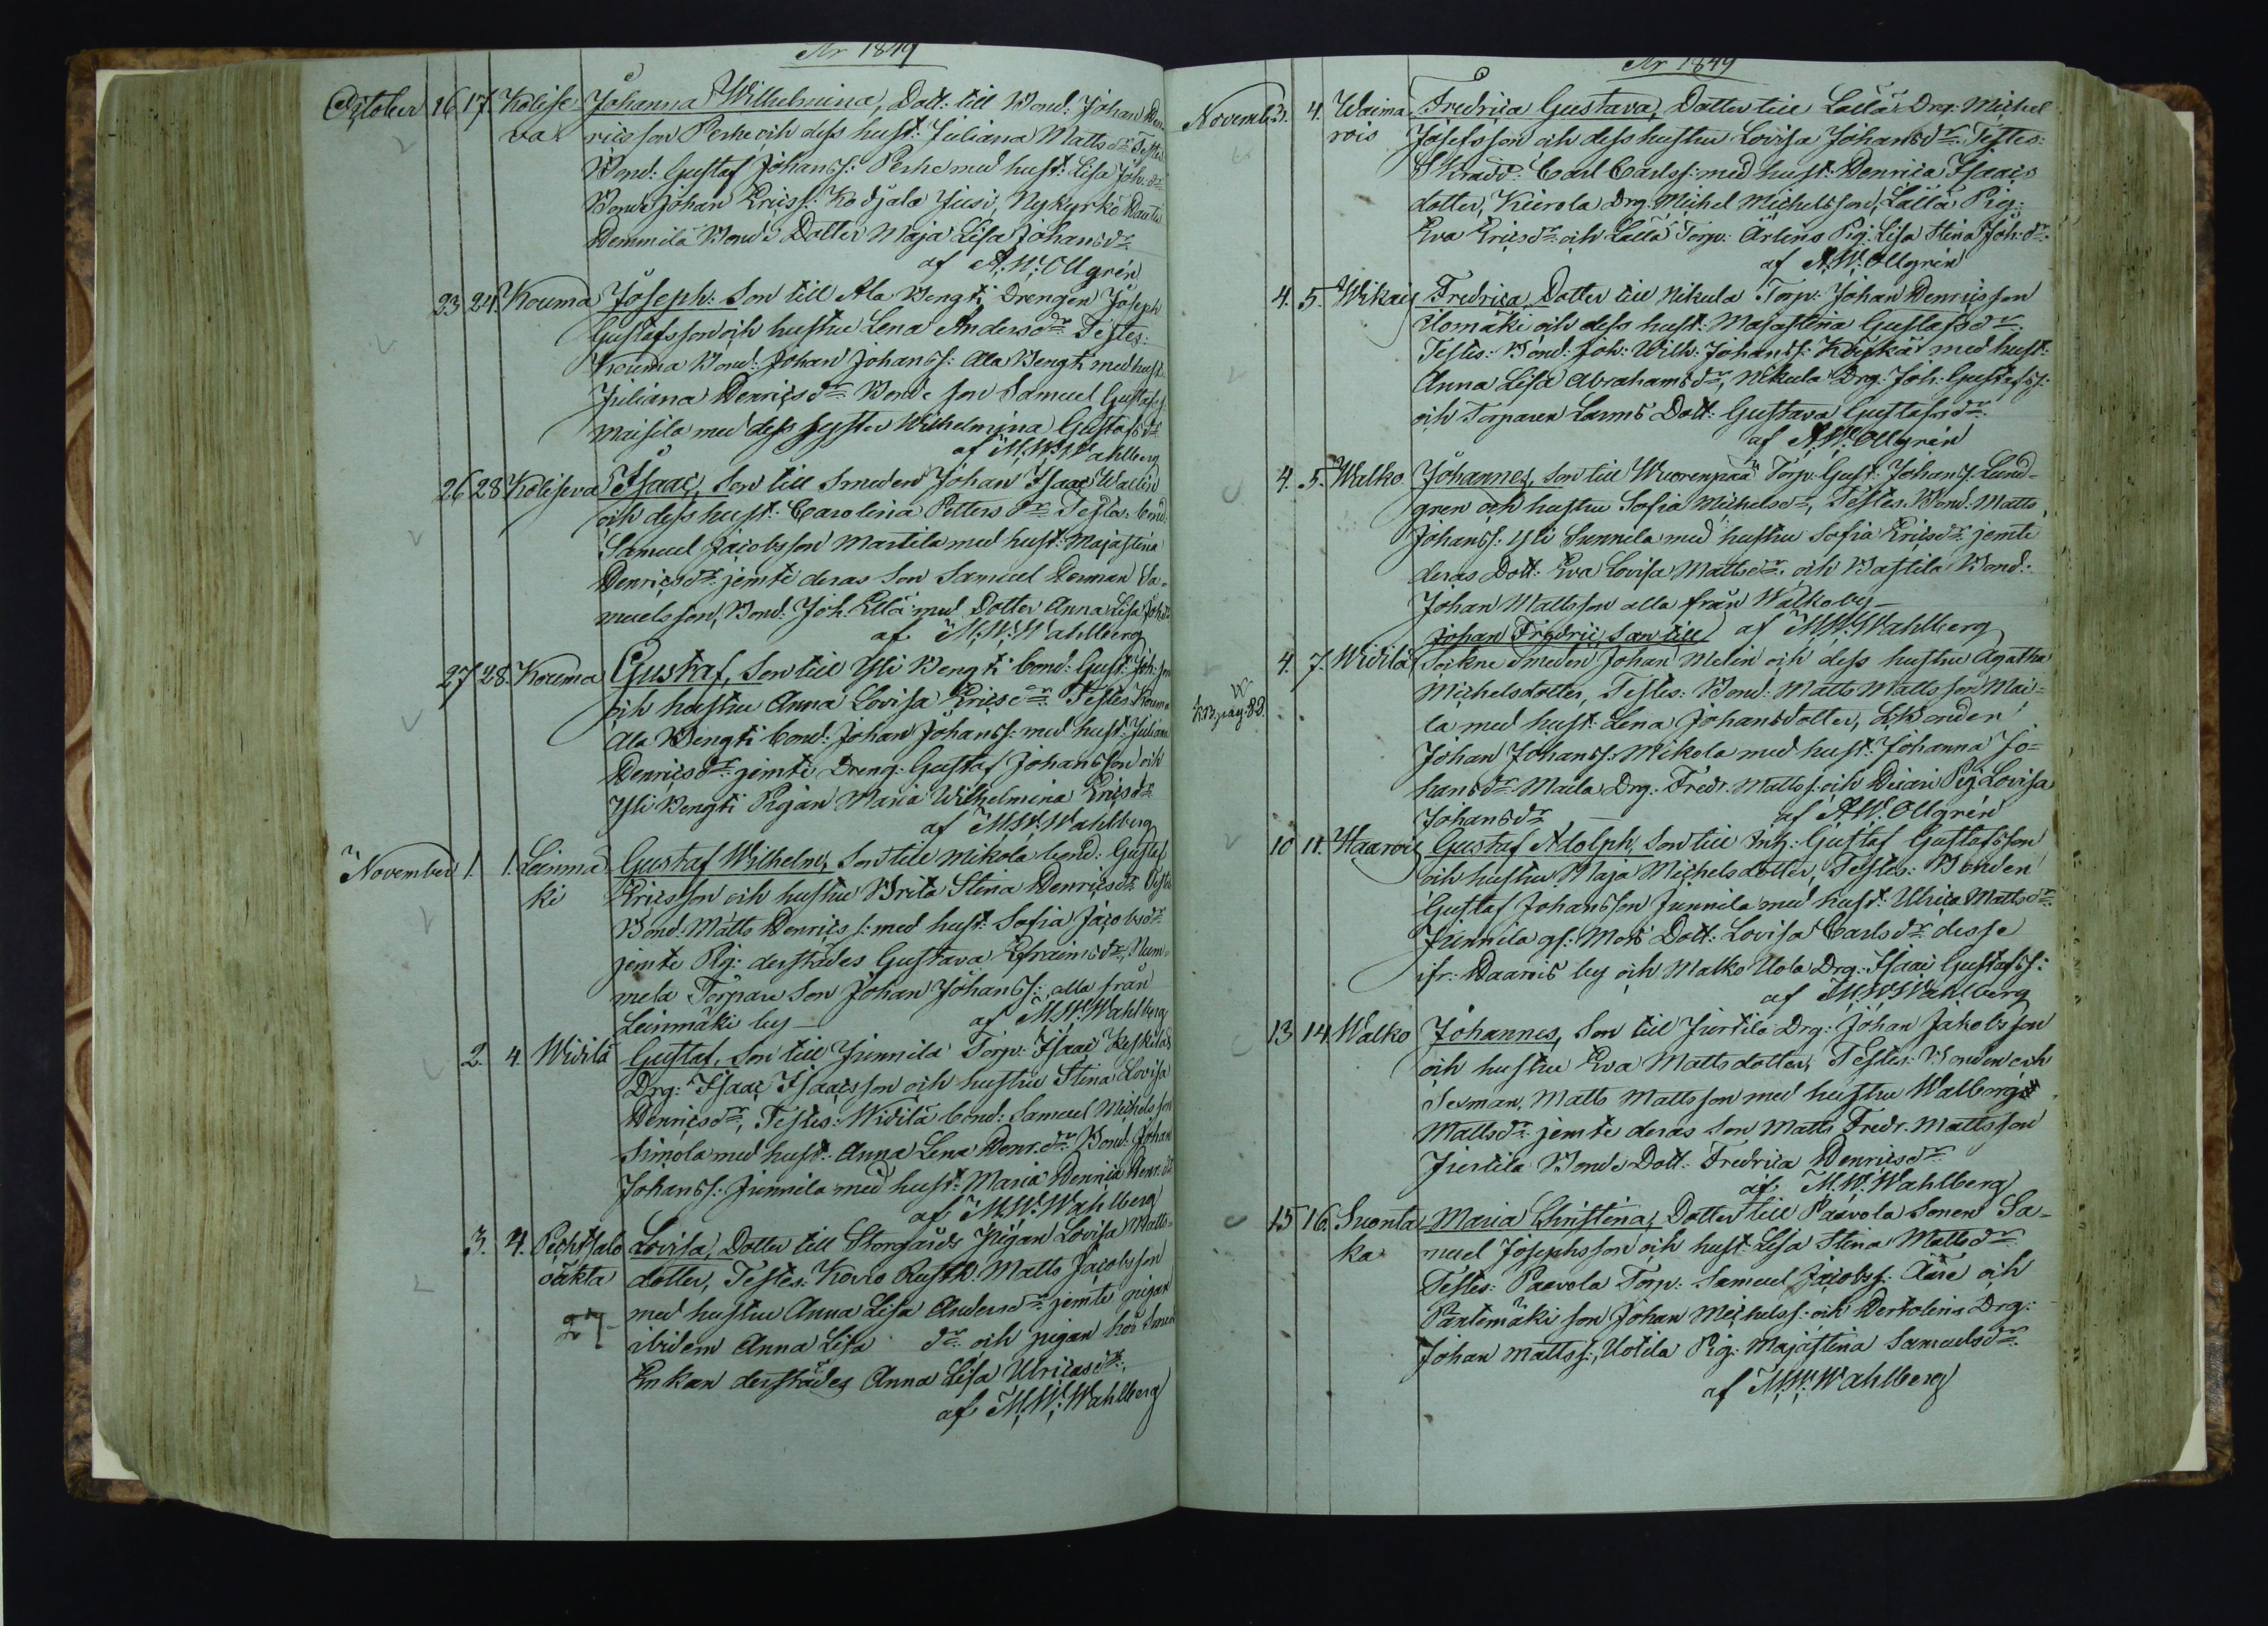 År 1849
October 16 17. Kolise- Johanna Wilhelmina, Dott: till Bond: Johan Hen-
va ricsson Perhe, och dess hust: Juliana Matts dr. Testes
Bond: Gustaf Johanss: Perhe med hust: Lisa Joh: dr.
Bonde Johan Ericss: Kodjala Jusi, Nykyrko
Hemmilä Bond: Dotter Maja Lisa Johansdr.
af A. W. Ollgrén
23 24. Kouma Joseph: Son till Ala Bengti Drengen Joseph
Gustafsson och hustru Lena Andersdr. Testes:
Kouma Bond: Johan Johanss: Ala Bengti med hust:
Juliana Henricsdr. Bonde son Samuel Gustafss:
Maisila med dess syster Wilhelmina Gustafsdr
af M. W. Wahlberg
26 28 Koliseva Isaac, Son till Smeden Johan Isaac Wallin
och dess hust: Carolina Petters dr. Testes: bond:
Samuel Jacobsson Martila med hust: Majastina
Henricsdr. jemte deras Son Samuel Herman Sa-
muelsson, Bond: Joh. Ellä med Dotter Anna Lisa Joh:dr
af M. W. Wahlberg
27 28. Kouma Gustaf, Son till Yli Bengti bond: Gust: Joh:son
och hustru Anna Lovisa Ericsdr. Testes Kouma
Ala Bengti bond: Johan Johanss: med hust: Juliana
Henricsdr. jemte Dreng: Gustaf Johansson och
Yli Bengti Pigan Maria Wilhelmina Ericsdr
af M. W. Wahlberg
November 1. 1. Leinmä- Gustaf Wilhelm, Son till Mikola bond: Gustaf
ki Ericsson och hustru Brita Stina Henricsdr. Testes
Bond: Matts Henricss: med hust: Sofia Jacobsdr
jemte Pig: derstädes Gustava Efraimsdr, Num-
mela Torpare Son Johan Johanss:, alla från
Leinmäki by – af M. W. Wahlberg
2. 4. Widilä Gustaf, Son till Junnila Torp: Isaac Keskiläs
Drg: Isaac Isaacsson och hustru Stina Lovisa
Henricsdr, Testes: Widilä bond: Samuel Michelsson
Simola med hust: Anna Lena Henr. dr. Bond: Johan
Johanss: Junnila med hust: Maria Henrica Henr. dr
af M. W. Wahlberg
3. 4. Pechtsalo Lovisa, Dotter till Storgårds Pigan Lovisa Matts-
oäkta dotter, Testes: Korro Rusth: Matts Jacobsson
med hustru Anna Lisa Andersdr. jemte pigan
ibidem Anna Lisa dr. och pigan hos
Enkan derstädes Anna Lisa Ulricasdr:
af M. W. Wahlberg
År 1849
Novemb. 3. 4. Waima- Fredrica Gustava, Dotter till Lällä Drg: Michel
rois Josefsson och dess hustru Lovisa Johansdr. Testes:
Skradd: Carl Carlss: med hust: Henrica Isaacs
dotter, Kierola Drg: Michel Michelsson, Lällä Pig:
Eva Ericsdr. och Lällä Torp: Ärlins Pig: Lisa Stina Joh: dr.
af A. W. Ollgrén
4. 5. Wikais Fredrica, Dotter till Nikula Torp: Johan Henricsson
Ilomäki och dess hust: Majastina Gustafsdr.
Testes: Bond: Joh: Wilh: Johanss: Köyskä med hust:
Anna Lisa Abrahamsdr, Nikula Drg: Joh: Gustafss:
och Torparen Larms Dott: Gustava Gustafsdr
af A. W. Ollgrén
4. 5. Walko Johannes, Son till Wuorenpää Torp: Gust: Johanss: Lund-
gren och hustru Sofia Michelsdr, Testes: Bond: Matts
Johanss: Yli Sunnila med hustru Sofia Ericsdr. jemte
deras Dott: Eva Lovisa Mattsdr. och Wastila Bond:
Johan Mattsson alla från Walko by –
af M. W. Wahlberg
Johan Fredric, Son till
4. 7. Widilä Sockne Smeden Johan Melin och dess hustru Agatha
KB. pag: 82. Michelsdotter, Testes: Bond: Matts Mattsson Mai-
la med hust: Lena Johansdotter, Bonden
Johan Johanss: Mikola med hust: Johanna Jo-
hansdr. Maila Drg: Fredr. Mattss: och Pig: Lovisa
Johansdr. – af A. W. Ollgrén
10 11. Haarois Gustaf Adolph, Son till Inh: Gustaf Gustafsson
och hustru Maja Michelsdotter, Testes: Bonden
Gustaf Johansson Junnila med hust: Ulrica Mattsdr
Junnila gl: Mors Dott: Lovisa Carlsdr. desse
ifr: Haarois by och Walko Uola Drg: Isaac Gustafss:
af M. W. Wahlberg
13 14 Walko Johannes, Son till Juntila Drg: Johan Jakobsson
och hustru Eva Mattsdotter, Testes: Bonden och
Sexman, Matts Mattsson med hustru Walborg
Mattsdr. jemte deras Son Matts Fredr. Mattsson
Juntila Bonde Dott: Fredrica Henricsdr
af M. W. Wahlberg
15 16. Suonta- Maria Christina, Dotter till Paavola Sonen Sa-
ka muel Josephsson och hust: Lisa Stina Mattsdr
Testes: Paavola Torp: Samuel Jacobss: Ääre och
Pantemäki son Johan Michelss: och Hertolins Drg:
Johan Mattss:, Uotila Pig: Majastina Samuelsdr.
af M. W. Wahlberg